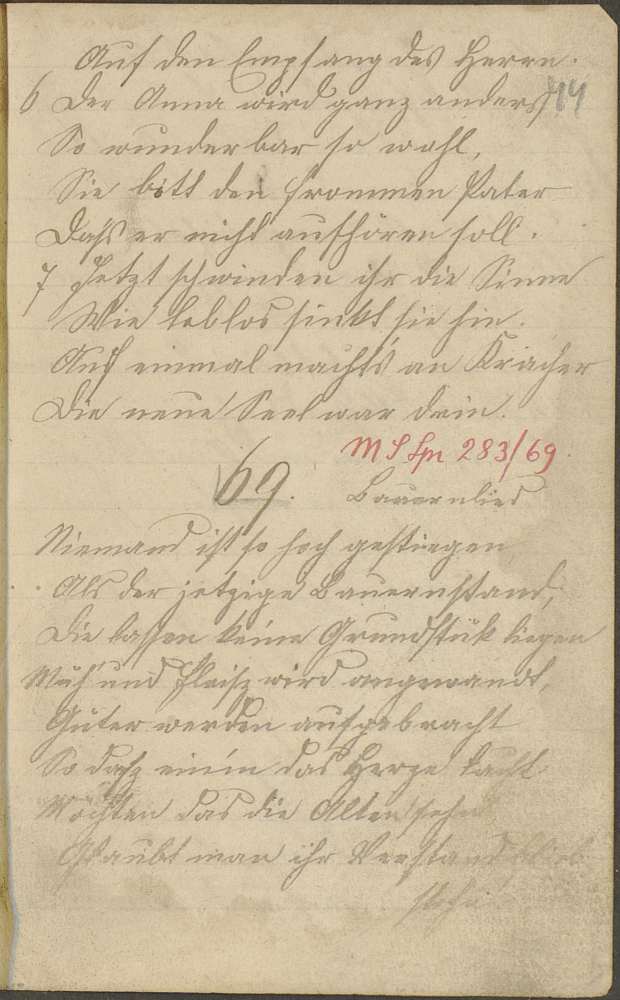 Auf den Empfang des Herrn.
6 Der Anna wird ganz anders 44
So wunderbar so wohl,
Sie bitt den frommen Pater
Daß er nicht aufhören soll.
7 Jetzt schwinden ihr die Sinne
Wie leblos sinkt sie hin.
Auf einmal machts an Kracher
Die neue Seel war drin.
M S Ln 283/69.
69. Bauernlied
Niemand ist so hoch gestiegen
Als der jetzige Bauernstand,
Die lassen keine Grundstük liegen
Müh und Fleiß wird angewandt,
Güter werden aufgebracht
So daß einem das Herze lacht
Möchten das die Alten sehn
Glaubt man ihr Verstand blieb
stehn